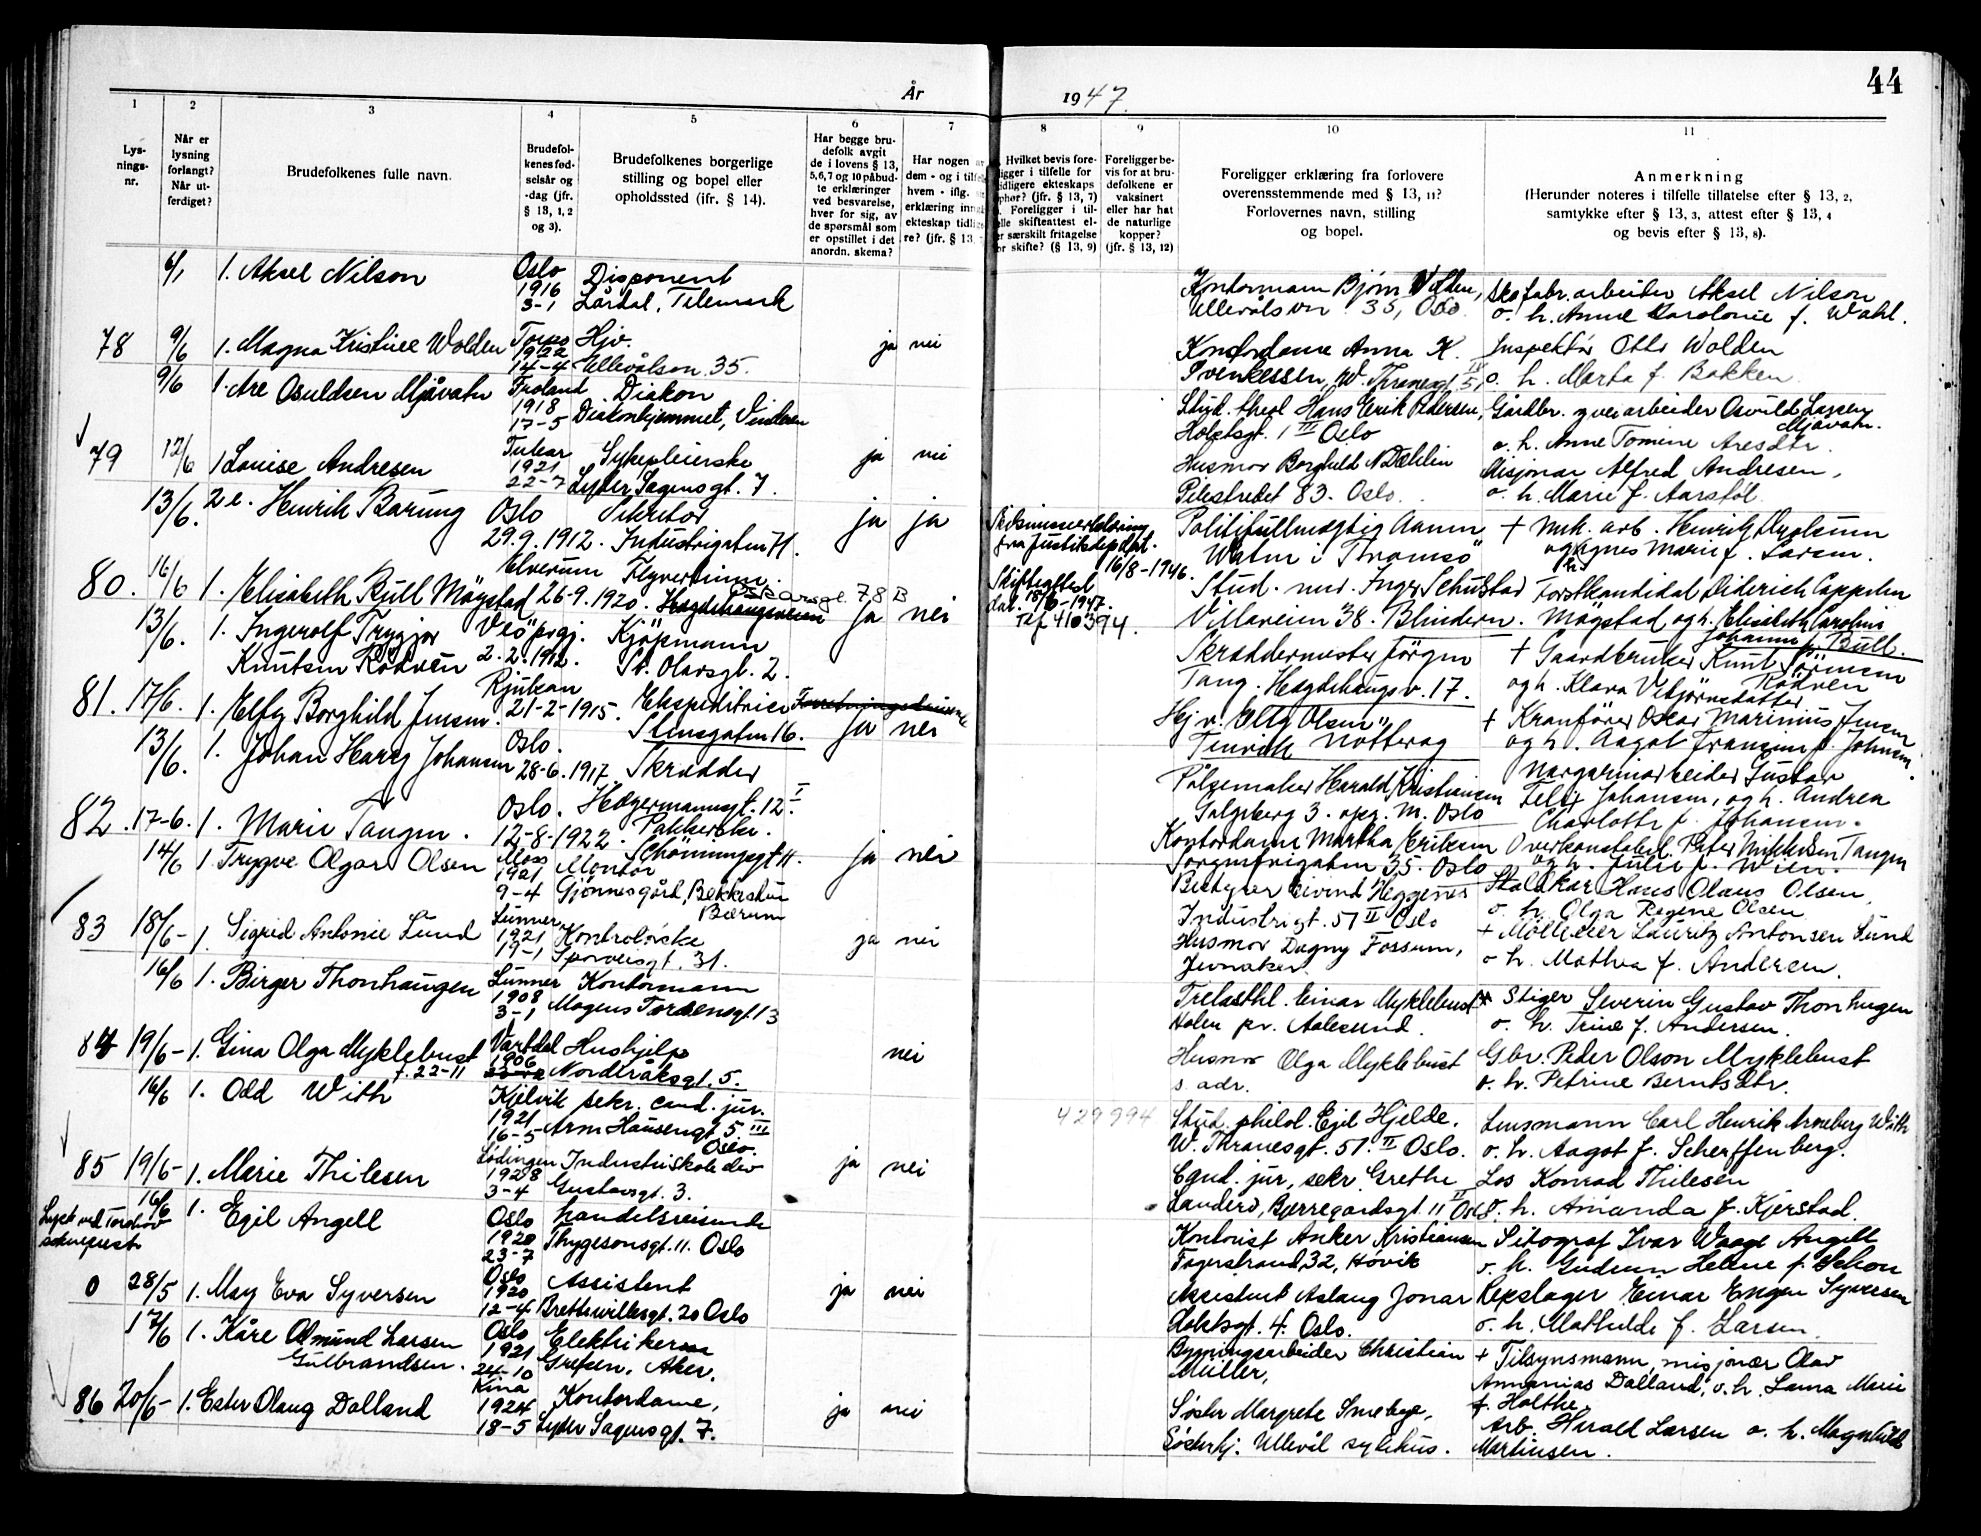 44
År 1947.
1 2 3 4 5 6 7 8 9 10 11
Lysningsnr.
Når er lysning forlangt? Når utferdiget?
Brudefolkenes fulle navn.
Brudefolkenes fødselsår og -dag (jfr. § 13, 1, 2 og 3).
Brudefolkenes borgerlige stilling og bopel eller opholdssted (ifr. § 14).
Har begge brudefolk avgit de i lovens § 13, 5, 6, 7 og 10 påbudte erklæringer ved besvarelse, hver for sig, av de spørsmål som er opstillet i det anordn. skema?
Har nogen av dem - og i tilfelle hvem - iflg.
erklæring inng
ekteskap tidlige
re? (jfr. § 13,
Hvilket bevis fore-
ligger i tilfelle for
tidligere ekteskaps
ophør? (jfr. § 13, 7)
Foreligger i til-
felle skifteattest el-
er særskilt fritagelse
for skifte? (§ 13, 9)
Foreligger bevis for at brudefolkene er vaksinert eller har hat de naturlige kopper? (jfr. § 13, 12)
Foreligger erklæring fra forlovere overensstemmende med § 13, 11? Forlovernes navn, stilling og bopel.
Anmerkning
(Herunder noteres i tilfelle tillatelse efter § 13, 2, samtykke efter § 13, 3, attest efter § 13, 4 og bevis efter § 13, 8).
6/1 1. Aksel Nilson Oslo 1916 3-1 Disponent Lårdal, Telemark
Kontormann Bjørn Wolden, Ullevålsvn 35, Oslo
Skofabr.arbeider Aksel Nilson o. h. Anne Karolonie f. Wahl.
78 9/6 1. Magna Kristine Wolden 1922 14-4 Hjv. Ullevålsvn. 35. ja nei
Kontordame Anna K. Svenkessen, W. Thranesgt. 51
Inspektør Otto Wolden o. h. Marta f. Bakken
9/6 1. Are Osuldsen Mjåvatn Froland 1918 17-5 Diakon Diakonhjemmet, Vinderen
Stud. theol Hans Erik Pedersen, Holtsgt. 1 III Oslo
Gårdbr. og veiarbeider Osvild Lassen Mjåvatn.
o. h. Anne Tomine Aresdtr.
79 12/6 1 Louise Andresen Tulear 1921 22-7 Sykepleierske Lyder Sagensgt. 7. ja nei
Husmor Borghild N Dæhlin Pilestredet 83. Oslo.
Misjonær Alfred Andresen, o. h. Marie f. Aarstøl
13/6. 2 e. Henrik Barung Oslo 29.9.1912. Sekretær Industrigaten 71. ja ja
Skilsmisseerklæring fra Justisdepart. 16/8-1946.
Politifullmægtig Aanen Waten i Tromsö
+ mek. arb. Henrik
og h Agnes Marie f. Larsen.
80. 16/6 1. Elisabeth Bull Mögstad Elverum 26-9.1920. Flyvertinne. Oskarsgt. 78 B Hægdehaugsveien ja nei
Skifteattest dat. 18/6-1947. Tlf 410394.
Stud. med. Inger Schulstad Villaveien 38. Blindern.
Forstkandidat Diderich Cappelen Mögstad og h. Elisabeth Caroline Johanne f. Bull.
13/6. 1. Ingerolf Trygjor Knutsen Rödven Veöprgj. 2.2.1912. Kjöpmann St. Olavsgt. 2.
Skræddermester Jörgen Tang. Hægdehaugsv. 17.
+ Gaardbruker Knut Sörensen Rödven
og h. Klara Vebjörnsdatter
81. 17/6. 1. Elfy Borghild Jensen. Rjukan 21-2-1915. Ekspeditrice Forretningsdrivende Stensgaten 16. ja nei
Hej v. Elly Olsen" Tinrik Notterøg
+ Kranförer Oscar Marinius Jensen og h. Aagot Fransine f. Johnsen.
13/6. 1. Johan Harry Johansen Oslo. 28-6.1917 Skrædder Hægermannsgt. 12 I
Pølsemaker Harald Kristiansen Galgeberg 3. opg. M. Oslo
Margarinarbeider Gustav Felix Johansen, og h. Andrea Charlotte f. Johansen.
82. 17-6. 1. Marie Tangen. Oslo. 12-8-1922. Pakkerske. Schöningsgt 11. ja nei
Kontordame Martha Eriksen Sorgenfrigaten 35. Oslo
Overkonstabel Peter Mikkelsen Tangen og h. Julie f. Wien.
14/6 1. Trygve Olgar Olsen Moss 1921 9-4 Montør Gjønnesgård, Bekkestua Bærum
Bestyrer Eivind Heggenes Industrigt. 51 II Oslo
Stallkar Hans Olaus Olsen, o. h. Olga Regine Olsen
83 18/6- 1. Sigrid Antonie Lund Lunner 1921 19-1 Kontrolørske Sporveisgt. 31. ja nei
Husmor Dagny Fossum, Jevnaker.
+ Mølleeier Lauritz Antonsen Lund o h. Mathea f. Andersen.
16/6 1. Birger Thonhaugen Lunner 1908 3-1 Kontormann Mogens Torsensgt. 13
Trelasthl. Einar Myklebust Holen pr. Aalesund.
+ Stiger Severin Gustav Thonhugen o. h. Trine f. Andersen.
84 19/6- 1. Gina Olga Myklebust f. 22-11 Vartdal 1906 Hushjelp Nordråksgt. 5. nei
Husmor Olga Myklebust s. adr.
Gbr. Peder Olson Myklebust o. h. Petrine Berntsdtr.
16/6 1. Odd With Kjelvik 1921 16-5 sekr. cand. jur. Arm Hansengt 5 III Oslo.
429994
Stud. philol. Egil Hjelde. W. Thranesgt. 51. II Oslo.
Lensmann Carl Henrik Arneberg With o. h. Aagot f. Scherffenberg.
85 19/6- 1. Marie Thilesen Lødingen 1928 3-4 Industriskoleelev Gustavsgt. 3. ja nei
Cand. jur, sekr. Grethe Landerø, Bjerregårdsgt. 11 II Oslo
Los Konrad Thilesen o. h. Amanda f. Kjerstad.
Lyst ved Torshov sokneprest
16/6 1. Egil Angell Oslo 1920 23-7 handelsreisende Thygesonsgt. 11. Oslo
Kontorist Anker Kristiansen Fagerstrand 32, Høvik
Litograf Ivar Waage Angell o. h. Gudrun Helene f. Schon
0 28/5 1. May Eva Syversen Oslo 1920 12-4 Assistent Brettevillesgt. 20 Oslo ja nei
Assistent Aslaug Jonar Holtsgt. 4. Oslo.
Repslager Einar Engen Syversen o. h. Mathilde f. Larsen.
17/6 1. Kåre Osmund Larsen Gulbrandsen. Oslo 1921 24-10 Elektriker Grefsen, Aker.
Bygningsarbeider Christian Müller,
+ Tilsynsmann, misjonær Olav Annanias Dalland, o. h. Lama Marie f. Holthe
86 20/6- 1. Ester Olaug Dalland Kina 1924 18-5 Kontordame, Lyder Sagensgt. 7. ja nei
Søster Margrete Smebye, Søsterhj. Ullevål sykehus.
Arb. Harald Larsen o. h. Magnhild Martinsen.